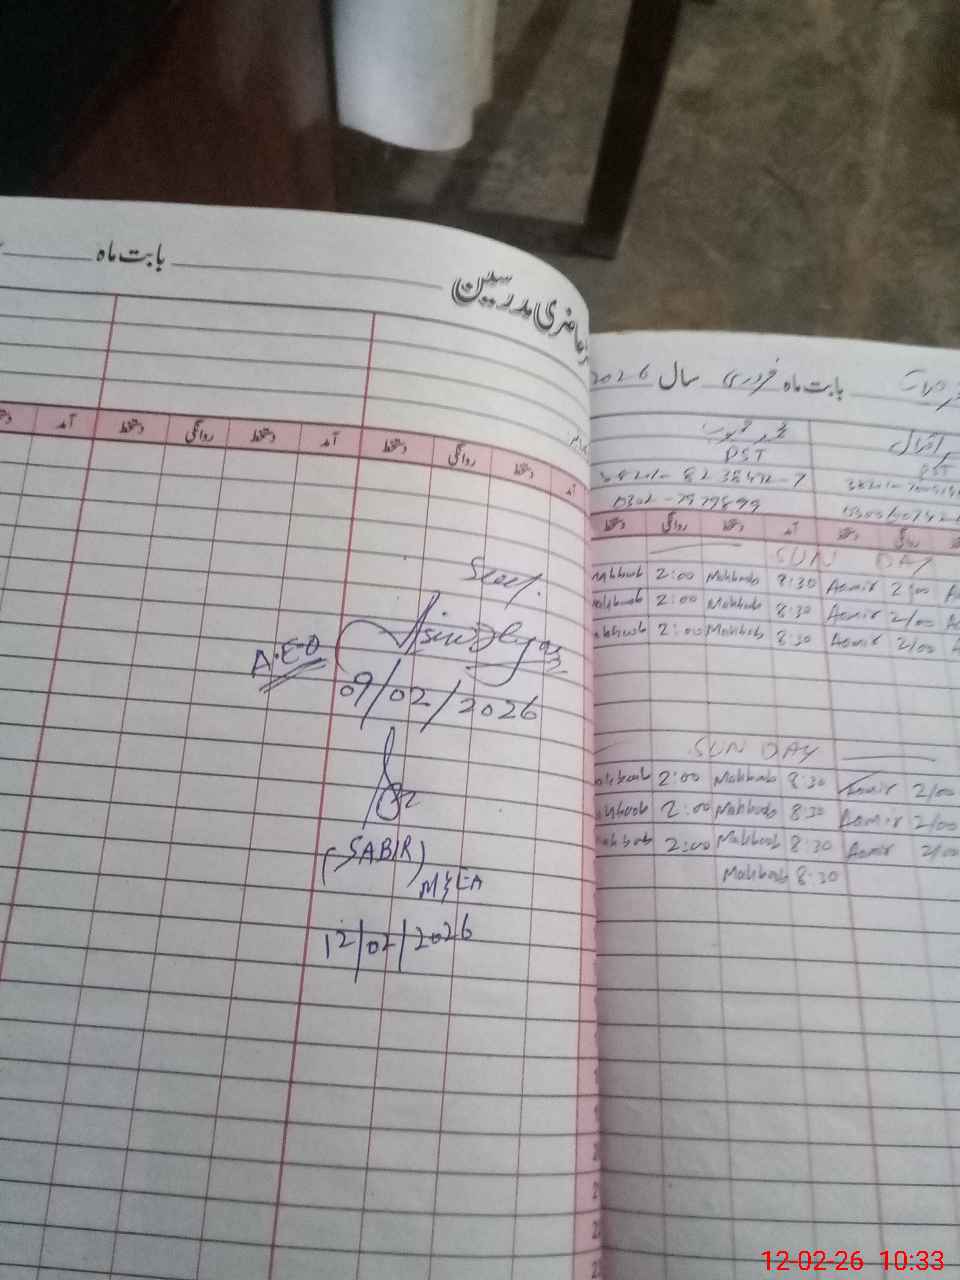 بابت ماہ
حاضری مدرسین
دستخط آمد دستخط روانگی دستخط آمد دستخط روانگی دستخط آمد
Seen
A.E.O
09/02/2026
(SABIR)
M&EA
12/02/2026
بابت ماہ فروری سال 2026
اقبال
PST PST
8238472-7
0302-7979899
دستخط روانگی دستخط آمد دستخط روانگی
SUN DAY
Mahboob 2:00 Mahboob 8:30 Aamir 2:00
Mahboob 2:00 Mahboob 8:30 Aamir 2/00
Mahboob 2:00 Mahboob 8:30 Aamir 2/00
SUN DAY
Mahboob 2:00 Mahboob 8:30 Aamir 2/00
Mahboob 2:00 Mahboob 8:30 Aamir 2/00
Mahboob 2:00 Mahboob 8:30 Aamir 2/00
Mahboob 8:30
12-02-26 10:33